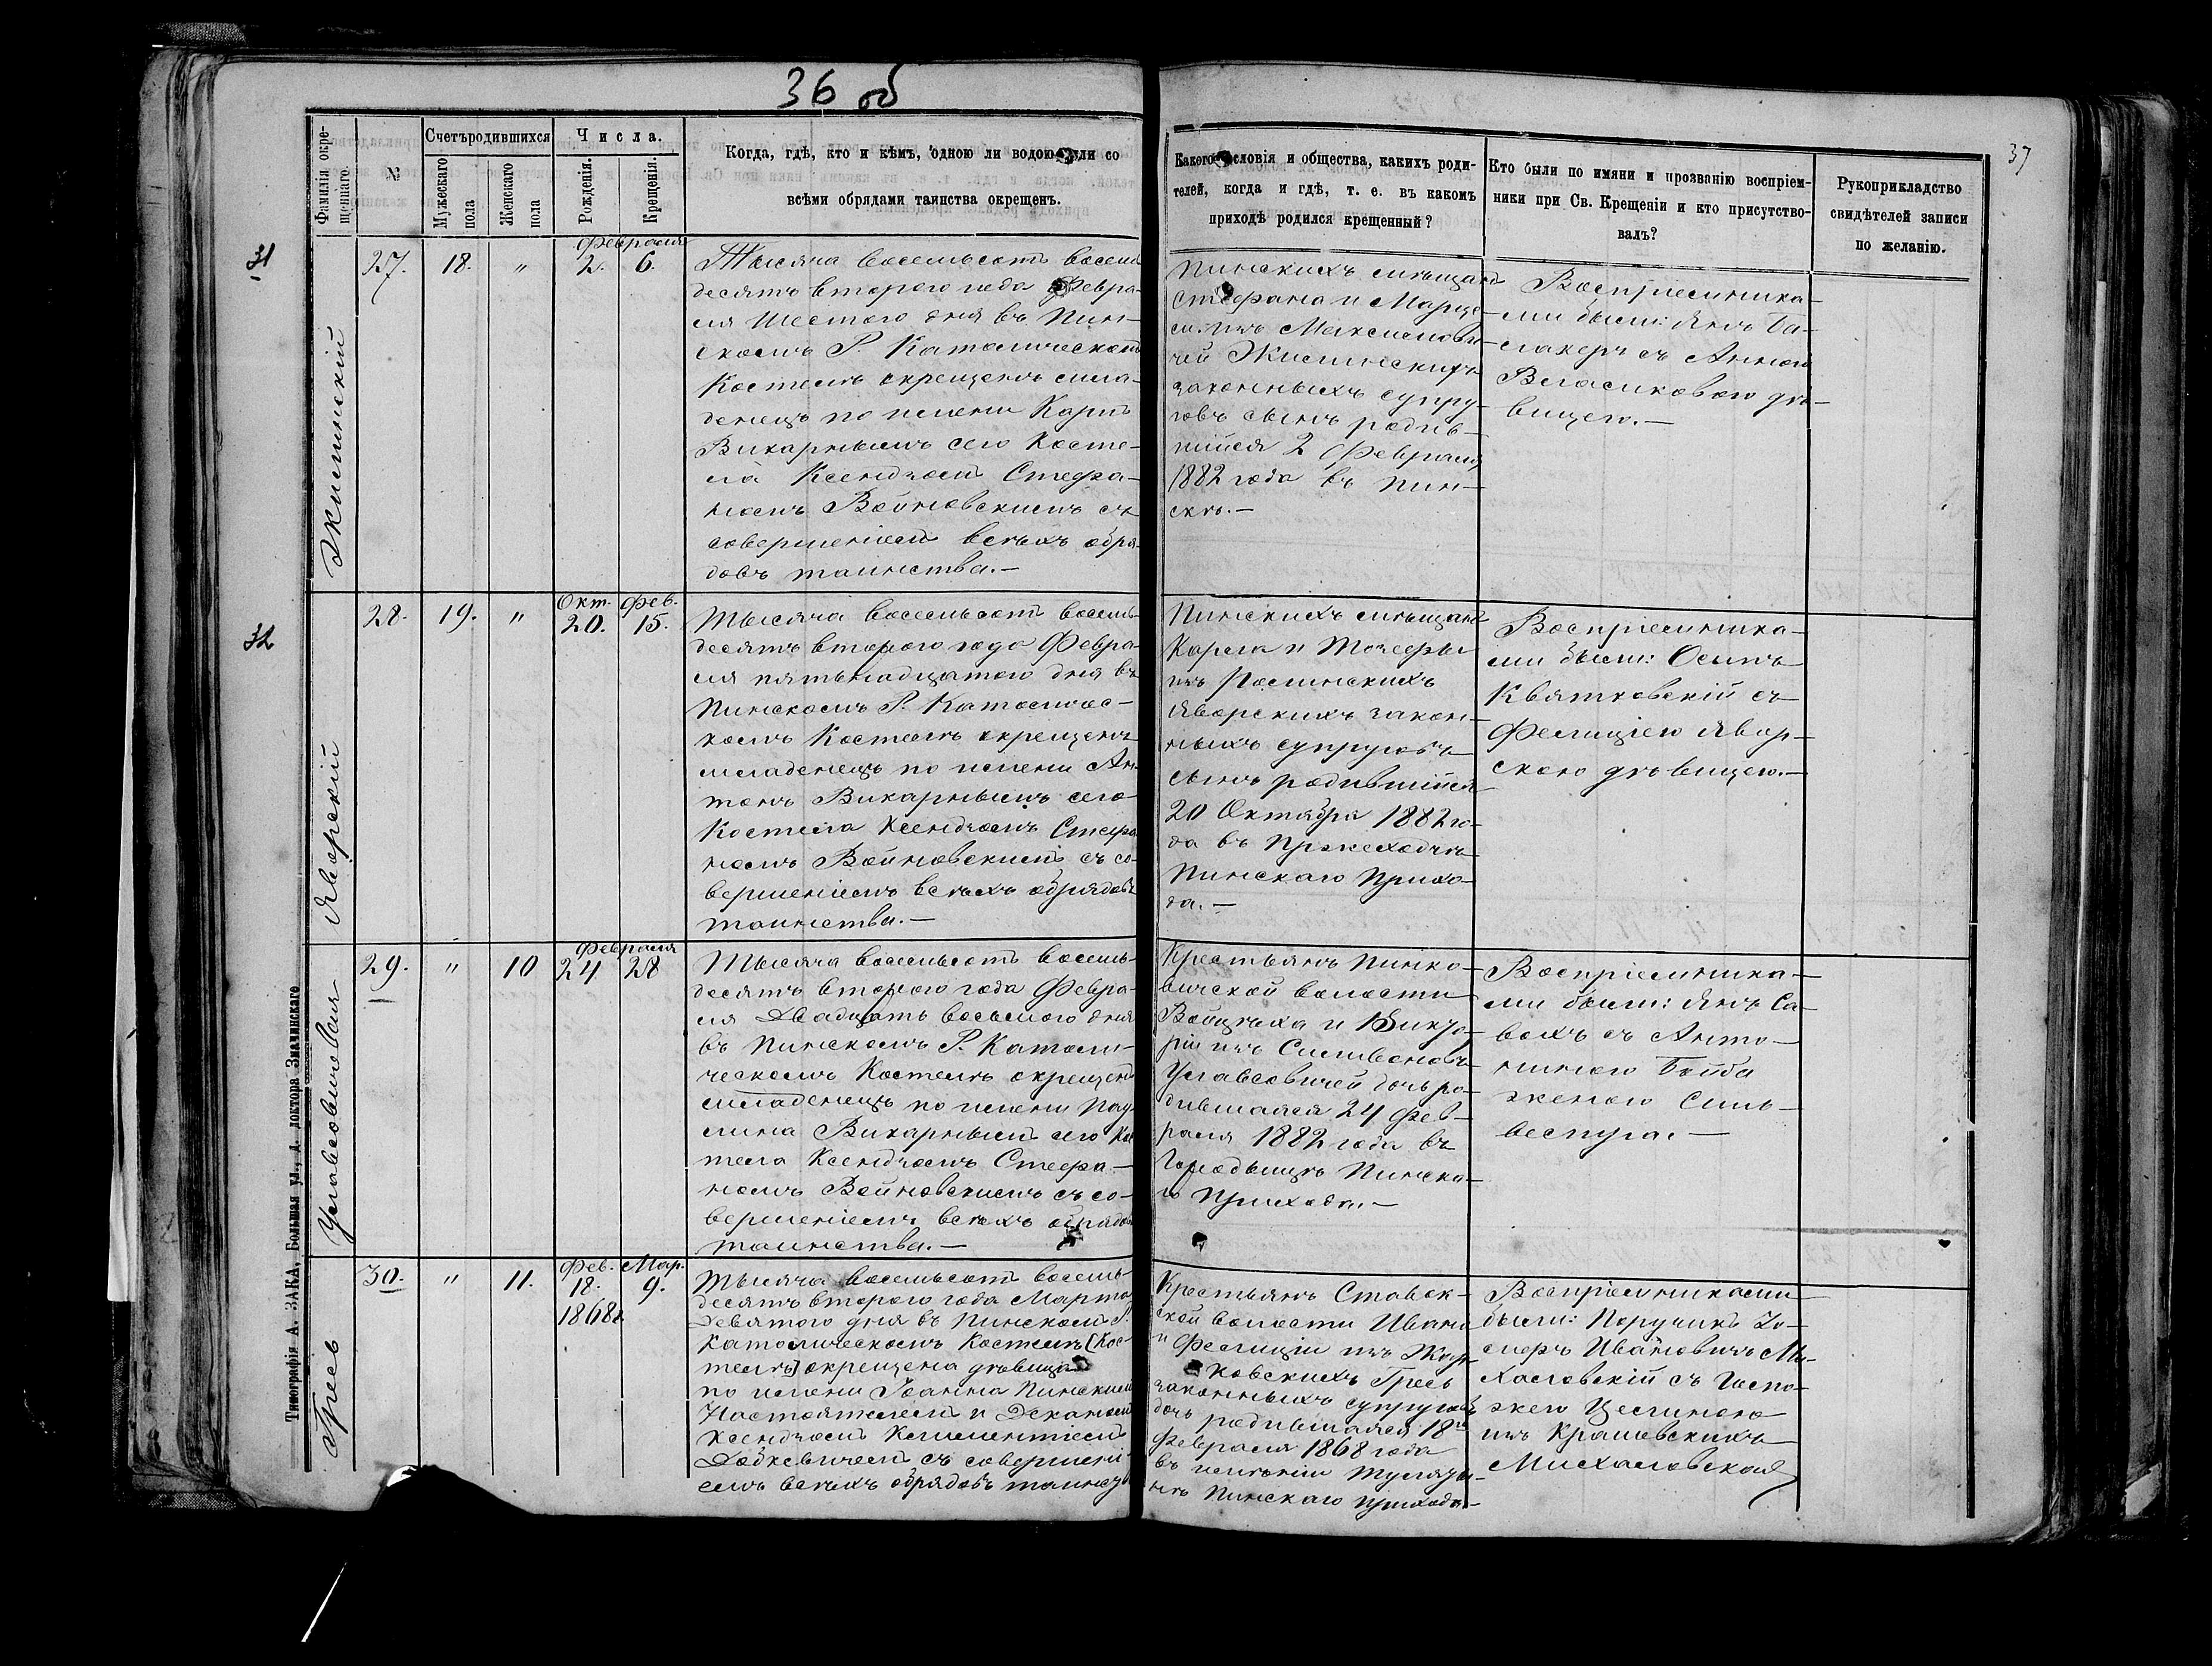 36 об
37
Фамилія окре-
щеннаго.
№
Счетъ родившихся
Мужескаго
пола
Женскаго
пола
Числа.
Рожденія.
Крещенія.
Когда, гдѣ, кто и кѣмъ, одною ли водою или со
всѣми обрядами таинства окрещенъ.
Какого сословія и общества, какихъ роди-
телей, когда и гдѣ, т. е. въ какомъ
приходѣ родился крещенный?
Кто были по имяни и прозванію воспріем-
ники при Св. Крещеніи и кто присутство-
валъ?
Рукоприкладство
свидѣтелей записи
по желанію.
31
Жилинскій
27.
18.
"
Февраля
2. 6.
Тысяча восемьсотъ восемь
десятъ второго года Февра-
ля Шестого дня въ Пин-
скомъ Р. Католическомъ
Костелѣ окрещенъ мла-
денецъ по имени Карлъ
Викарнымъ сего Косте-
ла Ксендзомъ Стефа-
номъ Войновскимъ съ
совершеніемъ всѣхъ обря-
довъ таинства.—
Пинскихъ мѣщанъ
Стефана и Марце-
лі изъ
чей Жилинскихъ
законныхъ супру-
говъ сынъ родив-
шійся 2 Февраля
1882 года въ Пин-
скѣ.—
Воспріемника-
ми были: Янъ Ба-
с Анною
дѣ-
вицею.—
32
Яворскій
28.
19.
"
Окт. Фев.
20. 15.
Тысяча восемьсотъ восемь-
десятъ второго года Февра-
ля пятьнадцатого дня въ
Пинскомъ Р. Католичес-
комъ Костелѣ окрещенъ
младенецъ по имени Ан-
тонъ Викарнымъ сего
Костела Ксендзомъ Стефа
номъ Войновскимъ съ со-
вершеніемъ всѣхъ обрядовъ
таинства.—
Пинскихъ мѣщанъ
Карла и
изъ
Яворскихъ закон-
ныхъ супруговъ
сынъ родившійся
20 Октября 1882 го-
да въ
Пинскаго Прихо-
да.—
Воспріемника-
ми были: Осипъ
Квятковскій съ
Фелиціею Явор-
скою дѣвицею.—
Углавсовичовая
29.
"
10
Февраля
24 28
Тысяча восемьсотъ восемь-
десятъ второго года Февра-
ля Двадцать восьмого дня
въ Пинскомъ Р. Католи-
ческомъ Костелѣ окрещенъ
младенецъ по имени Пау-
лина Викарнымъ сего Кос
тела Ксендзомъ Стефа-
номъ Войновскимъ съ со-
вершеніемъ всѣхъ обрядовъ
таинства.—
Крестьянъ Пинко-
вичской волости
Войцѣха и Викто-
ріи изъ
дочь ро-
дившаяся 24 Фев-
раля 1882 года въ
Городыщѣ Пинска-
го Прихода.—
Воспріемника-
ми были: Янъ Са-
вохъ съ Анто-
ниною Бойба
женою Силь-
веспра.—
Гресь
30.
"
11.
Фев. Мар.
18. 9.
1868г
Тысяча восемьсотъ восемь-
десятъ второго года Марта
Девятого дня въ Пинскомъ Р.
Католическомъ Костелѣ [Кос-
телѣ] окрещена дѣвица
по имени Іоанна Пинскимъ
Настоятелемъ и Деканомъ
Ксендзомъ Климентіемъ
съ совершені-
емъ всѣхъ обрядовъ таинст
Крестьянъ Ставок-
ской волости Ивана
и Фелиціи изъ
ковскихъ Гресь
законныхъ супруговъ
дочь родившаяся 18го
Февраля 1868 года
въ имѣніи
Пинскаго прихода.—
Воспріемниками
были: Поручикъ Іо-
Ивановичъ Ми-
халовскій съ Госпо-
жею Целиною
изъ Крашевскихъ
Михаловская
Типографія А. ЗАКА, Большая ул., д. доктора Значинскаго